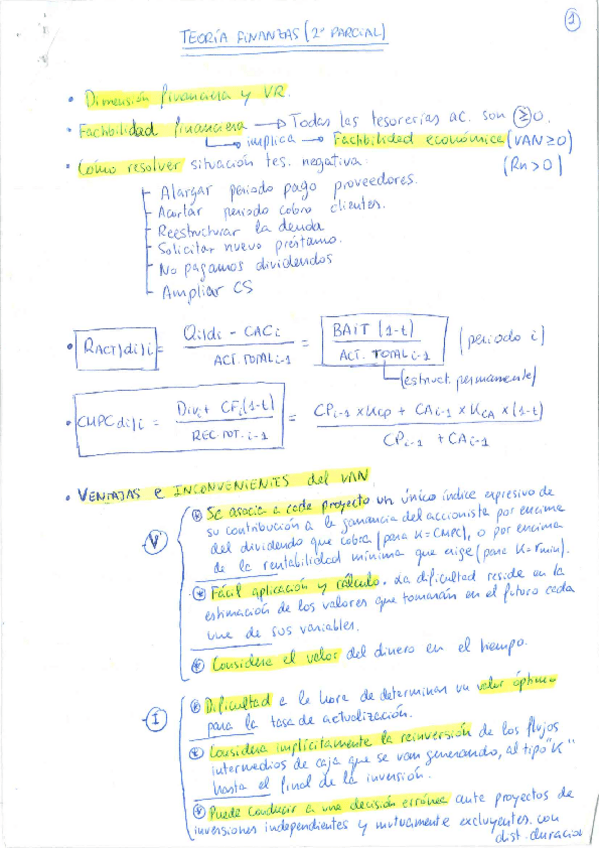 1
TEORÍA FINANZAS (2º PARCIAL)
• Dimensión financiera y VR.
• Factibilidad financiera → Todas las tesorerías ac. son ≥ 0.
implica → Factibilidad económica (VAN ≥ 0)
(Rn > 0)
• Cómo resolver situación tes. negativa:
- Alargar periodo pago proveedores.
- Acortar periodo cobro clientes.
- Reestructurar la deuda
- Solicitar nuevo préstamo.
- No pagamos dividendos
- Ampliar CS
• RACT)di)i = Qi)di - CACi / ACT. TOTAL i-1 = BAiT (1-t) / ACT. TOTAL i-1 (periodo i)
(estruct. permanente)
• CMPC di)i = Divi + CFi(1-t) / REC. TOT. i-1 = CPi-1 x KCP + CAi-1 x KCA x (1-t) / CPi-1 + CAi-1
• VENTAJAS e INCONVENIENTES del VAN
V
* Se asocia a cada proyecto un único índice expresivo de
su contribución a la ganancia del accionista por encima
del dividendo que cobra (para K=CMPC), o por encima
de la rentabilidad mínima que exige (para K=rmin).
* Fácil aplicación y cálculo. La dificultad reside en la
estimación de los valores que tomarán en el futuro cada
una de sus variables.
* Considera el valor del dinero en el tiempo.
I
* Dificultad a la hora de determinar un valor óptimo
para la tasa de actualización.
* Considera implícitamente la reinversión de los flujos
intermedios de caja que se van generando, al tipo "K"
hasta el final de la inversión.
* Puede conducir a una decisión errónea ante proyectos de
inversiones independientes y mutuamente excluyentes con
dist. duración